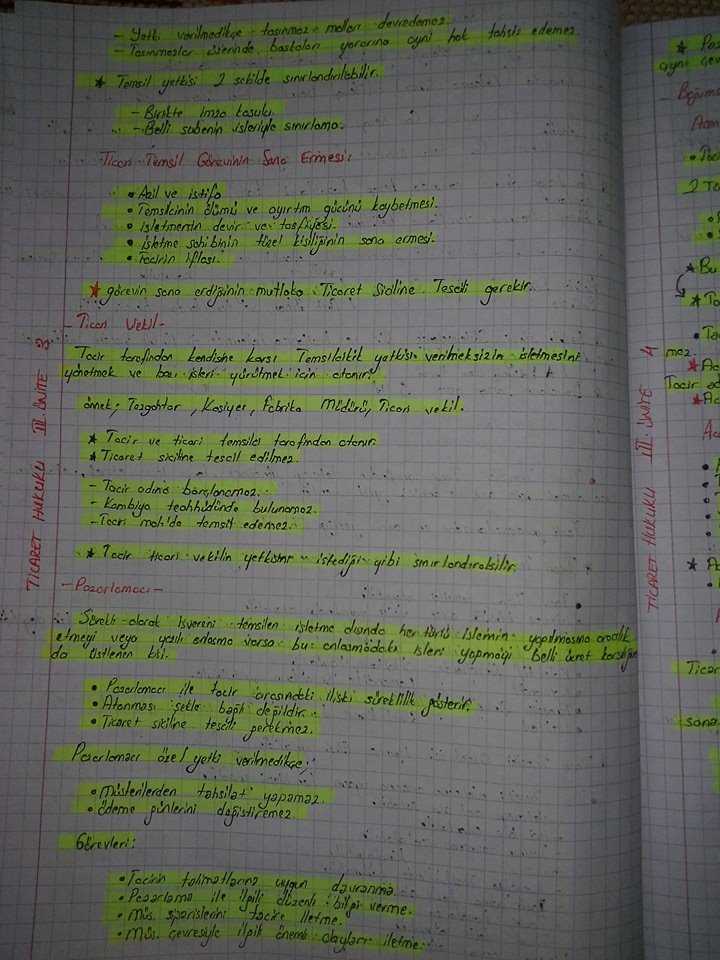 - Yetki verilmedikçe taşınmaz malları devredemez.
- Taşınmazlar üzerinde başkaları yararına ayni hak tahsis edemez.
★ Temsil yetkisi 2 şekilde sınırlandırılabilir.
- Birlikte imza koşulu
- Belli şubenin işleriyle sınırlama.
Ticari Temsil Görevinin Sona Ermesi:
• Azil ve istifa
• Temsilcinin ölümü ve ayırtım gücünü kaybetmesi.
• işletmenin devir ve tasfiyesi.
• işletme sahibinin tüzel kişiliğinin sona ermesi.
• Tacirin iflası.
★ görevin sona erdiğinin mutlaka Ticaret Siciline Tescili gerekir.
- Ticari Vekil -
Tacir tarafından kendisine karşı Temsilcilik yetkisi verilmeksizin işletmesini
yönetmek ve bazı işleri yürütmek için atanır.
örnek; Tezgahtar, Kasiyer, Fabrika Müdürü, Ticari vekil.
★ Tacir ve ticari temsilci tarafından atanır.
★ Ticaret siciline tescil edilmez.
- Tacir adına borçlanamaz.
- Kambiyo teahhüdünde bulunamaz.
- Taciri mah'de temsil edemez.
★ Tacir ticari vekilin yetkisini istediği gibi sınırlandırabilir.
- Pazarlamacı -
Sürekli olarak işvereni temsilen işletme dışında her türlü işlemin yapılmasına aracılık
etmeyi veya yazılı anlaşma varsa bu anlaşmadaki işleri yapmayı belli ücret karşılığın
da üstlenen kişi.
• Pazarlamacı ile tacir arasındaki ilişki süreklilik gösterir.
• Atanması şekle bağlı değildir.
• Ticaret siciline tescili gerekmez.
Pazarlamacı özel yetki verilmedikçe;
• Müşterilerden tahsilat yapamaz.
• ödeme günlerini değiştiremez
Görevleri:
• Tacirin talimatlarına uygun davranma
• Pazarlama ile ilgili düzenli bilgi verme.
• Müş. siparişlerini tacire iletme.
• Müş. çevresiyle ilgili önemli olayları iletme.
TİCARET HUKUKU III. ÜNİTE
TİCARET HUKUKU III. ÜNİTE 4